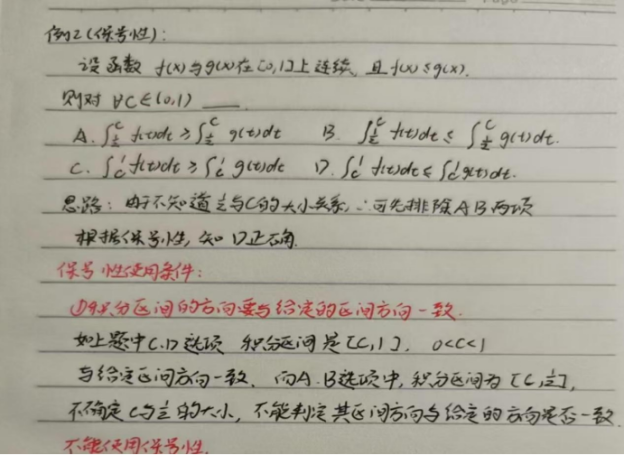 例2(保号性):
设函数 f(x)与g(x)在[0,1]上连续,且f(x)≤g(x).
则对 ∀C∈(0,1) ____.
A. ∫_{1/2}^{C} f(t)dt ≥ ∫_{1/2}^{C} g(t)dt B. ∫_{1/2}^{C} f(t)dt ≤ ∫_{1/2}^{C} g(t)dt.
C. ∫_{C}^{1} f(t)dt ≥ ∫_{C}^{1} g(t)dt D. ∫_{C}^{1} f(t)dt ≤ ∫_{C}^{1} g(t)dt.
思路:由于不知道1/2与C的大小关系,∴可先排除AB两项
根据保号性,知D正确.
保号性使用条件:
①积分区间的方向要与给定的区间方向一致.
如上题中C.D选项 积分区间是[C,1], 0<C<1
与给定区间方向一致,而A.B选项中,积分区间为[C,1/2],
不确定C与1/2的大小,不能判定其区间方向与给定的方向是否一致
不能使用保号性.